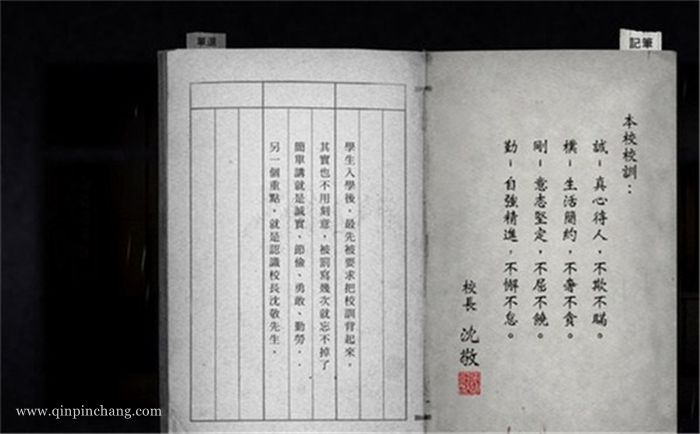 單選
記筆
本校校訓：
誠－真心待人，不欺不瞞。
樸－生活簡約，不奢不貪。
剛－意志堅定，不屈不饒。
勤－自強精進，不懈不怠。
校長 沈敬
學生入學後，最先被要求把校訓背起來，
其實也不用刻意，被罰寫幾次就忘不掉了
簡單講就是誠實、節儉、勇敢、勤勞．．
另一個重點，就是認識校長沈敬先生．
www.qinpinchang.com